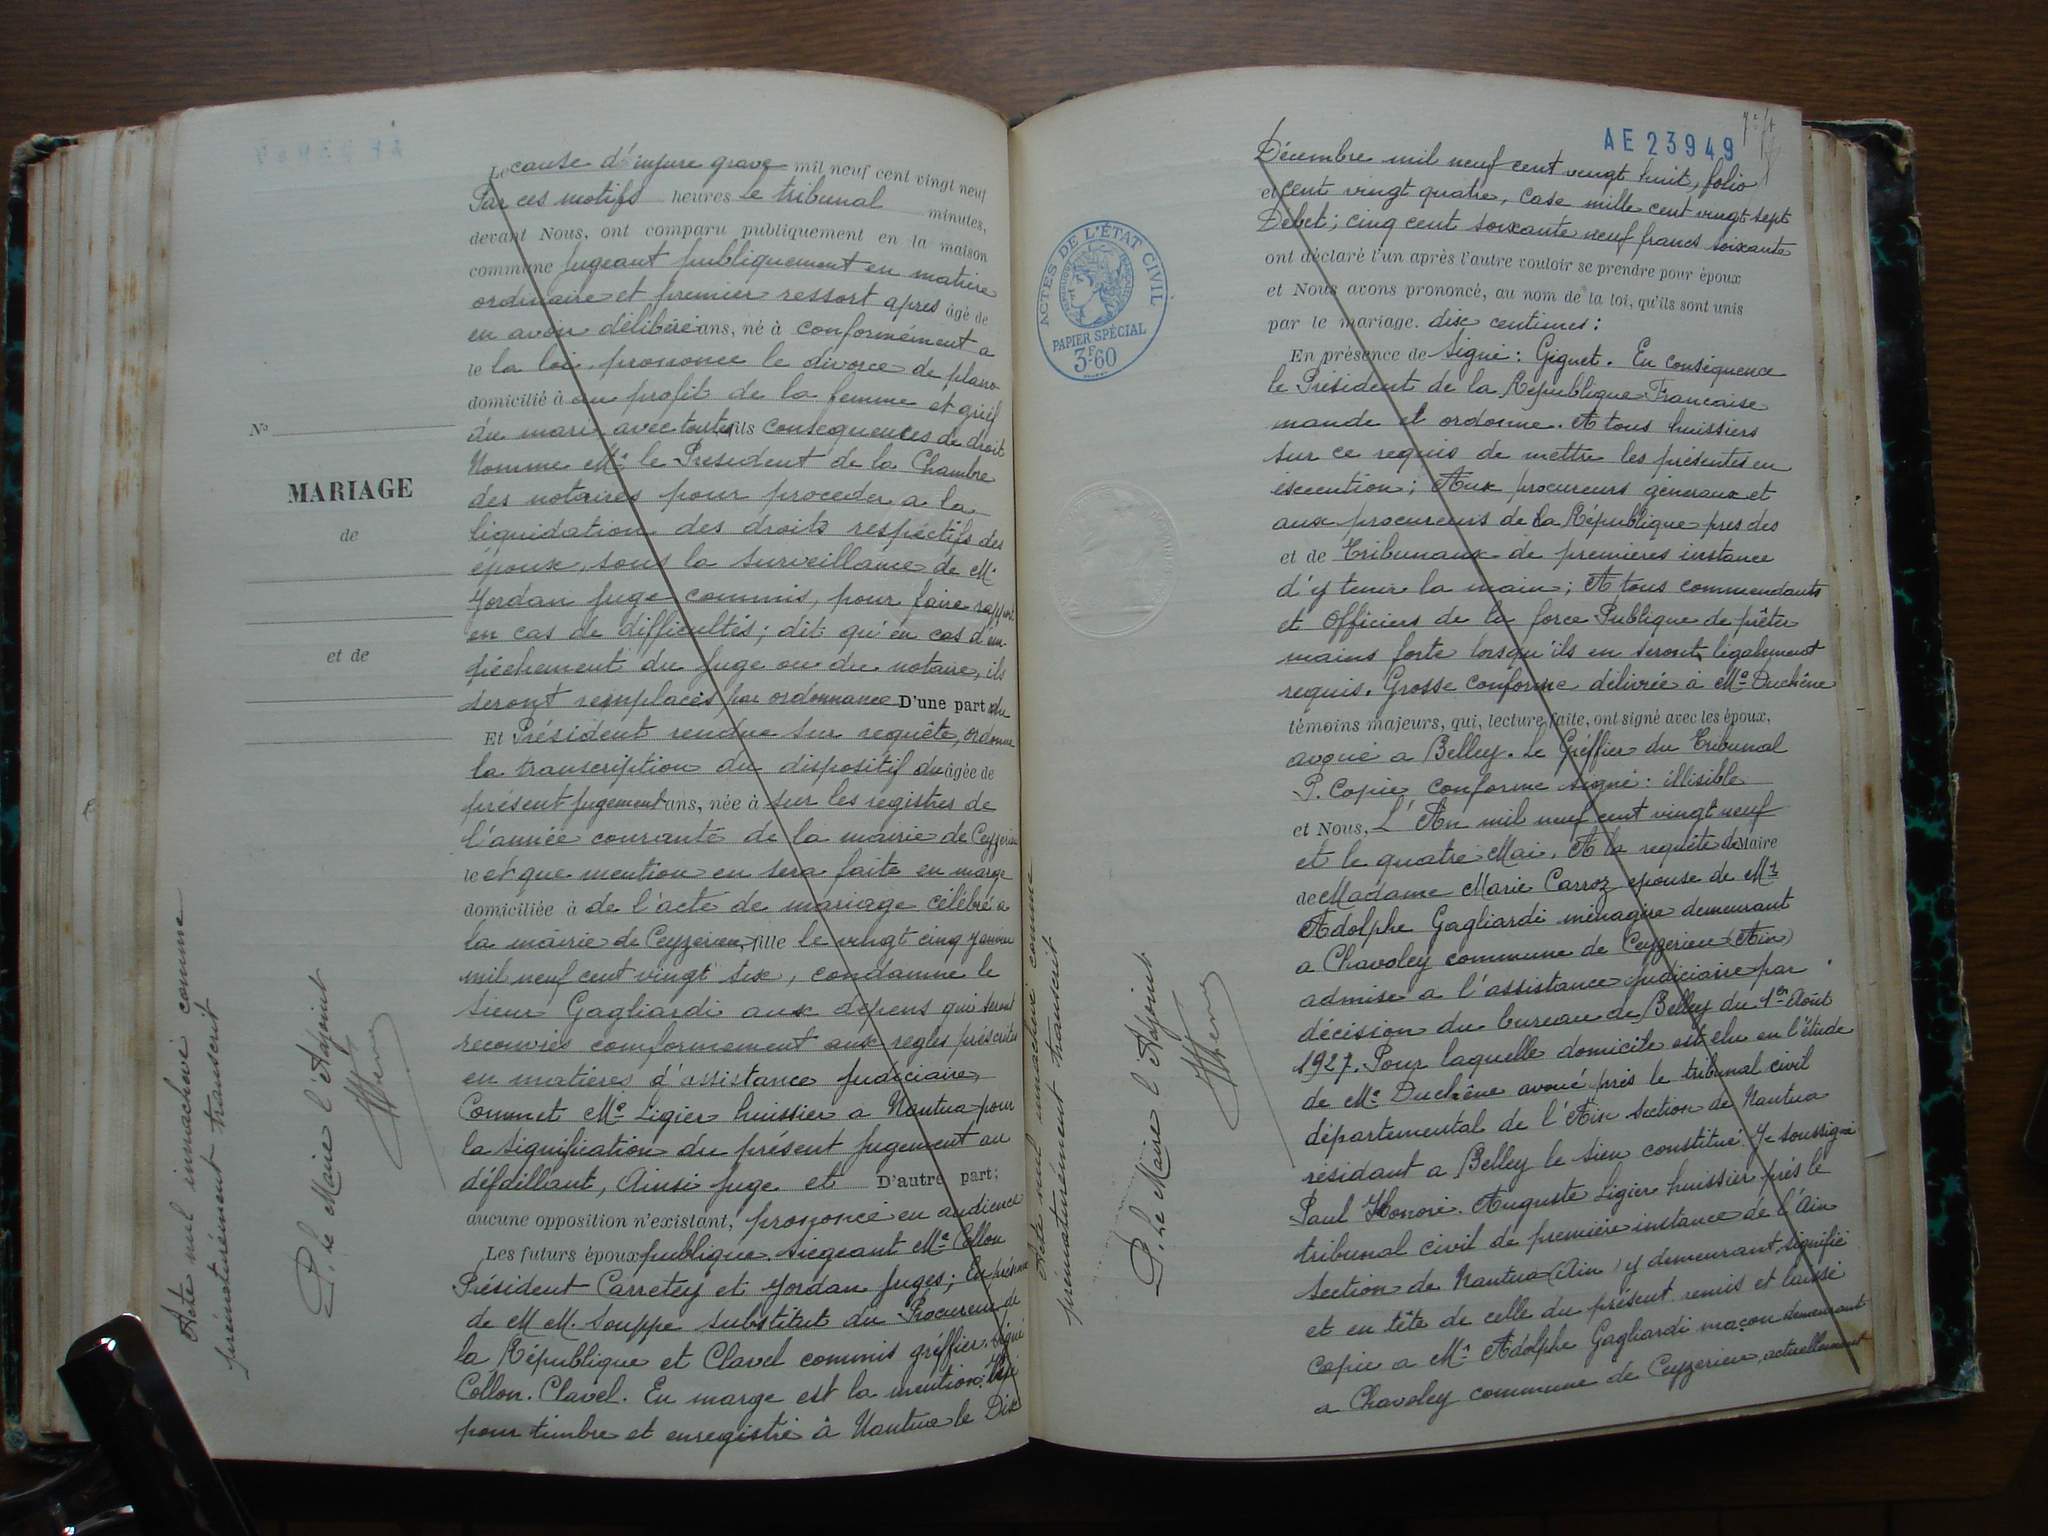 Le cause d'injure grave mil neuf cent vingt neuf
Par ces motifs heures le tribunal minutes,
devant Nous, ont comparu publiquement en la maison
commune jugeant publiquement en matière
ordinaire et premier ressort apres âgé de
en avoir délibéré ans, né à conformément a
le la loi, prononce le divorce de plano
domicilié à au profit de la femme et grief
du mari avec toutes ils consequences de droit
Nomme Me le Président de la Chambre
des notaires pour proceder a la
liquidation des droits respéctifs des
époux, sous la surveillance de Mr
Jordan juge commis, pour faire rapport
en cas de difficultés; dit qu'en cas d'em-
pêchement du juge ou du notaire, ils
seront remplacés par ordonnance D'une part du
Et Président rendue sur requête, ordonne
la transcription du dispositif du âgée de
présent jugement ans, née à sur les registres de
l'année courante de la mairie de Ceyzerieu
le et que mention en sera faite en marge
domiciliée à de l'acte de mariage célébré a
la mairie de Ceyzerieu, fille le vingt cinq Janvier
mil neuf cent vingt six, condamne le
sieur Gagliardi aux depens qui seront
recouvrés comformement aux regles préscrites
en matières d'assistance judiciaire,
Commet Me Ligier huissier a Nantua pour
la signification du présent jugement au
défaillant, Ainsi juge et D'autre part;
aucune opposition n'existant, prononcé en audience
Les futurs époux publique. siegeant Me Collon
Président Carretey et Jordan juges; En présence
de M M. Souppe substitut du Procureur de
la République et Clavel commis gréffier. signé
Collon. Clavel. En marge est la mention: Visé
pour timbre et enregistré à Nantua le Dix
No
MARIAGE
de
et de
Acte nul innachevé comme
prématurément transcrit
P. Le Maire l'Adjoint
AE 23949
Décembre mil neuf cent vingt huit, folio
et cent vingt quatre, case mille cent vingt sept
Debet; cinq cent soixante neuf francs soixante
ont déclaré l'un après l'autre vouloir se prendre pour époux
et Nous avons prononcé, au nom de la loi, qu'ils sont unis
par le mariage. dix centimes:
En présence de Signé: Giguet. En conséquence
le Président de la République Francaise
mande et ordonne. A tous huissiers
sur ce requis de mettre les présentes en
éxécution; Aux procureurs géneraux et
aux procureurs de la République pres des
et de Tribunaux de premières instance
d'y tenir la main; A tous commendants
et Officiers de la force Publique de prêter
mains forte lorsqu'ils en seront légalement
requis. Grosse conforme délivrée à Me Duchêne
témoins majeurs, qui, lecture faite, ont signé avec les époux,
avoué a Belley. Le Gréffier du Tribunal
P. Copie conforme signé: illisible
et Nous, L'An mil neuf cent vingt neuf
et le quatre Mai, A la requête de Maire
de Madame Marie Carroz epouse de Mr
Adolphe Gagliardi ménagère demeurant
a Chavoley commune de Ceyzerieu (Ain)
admise a l'assistance judiciaire par
décision du bureau de Belley du 1er Août
1927. Pour laquelle domicile est elu en l'étude
de Me Duchêne avoué près le tribunal civil
départemental de l'Ain section de Nantua
résidant a Belley le sieu constitué. Je soussigné
Paul Honoré. Auguste Ligier huissier près le
tribunal civil de première instance de l'Ain
section de Nantua (Ain) y demeurant, signifié
et en tête de celle du présent remis et laissé
Copie a Mr Adolphe Gagliardi maçon demeurant
a Chavoley commune de Ceyzerieu, actuellement
ACTES DE L'ÉTAT CIVIL
PAPIER SPÉCIAL
3F60
Acte nul innachevé comme
prématurément transcrit
P. Le Maire l'Adjoint